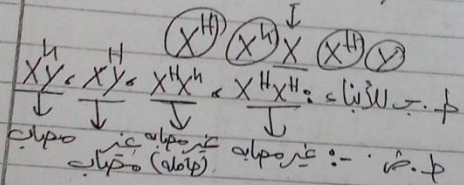 X^H X^h X X^H Y
ط.ج للأبناء: X^H X^H ، X^H X^h ، X^H Y ، X^h Y
ط.ش :- غير مصابه غير مصابه غير مصاب
(حامله) مصاب